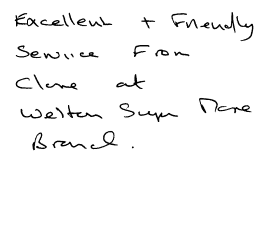 Excellent + Friendly
Service From
Clare at
Weston Super Mare
Branch.